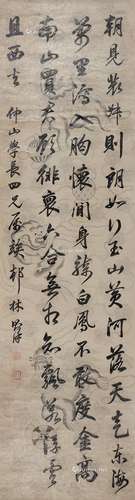 朝見裴叔則朗如行玉山黃河落天走東海
萬里瀉入胸懷間身騎白不敢度金高
南山買君顧徘徊六合無相知飄若浮雲
且西去 仲山學長四兄屬 邨林